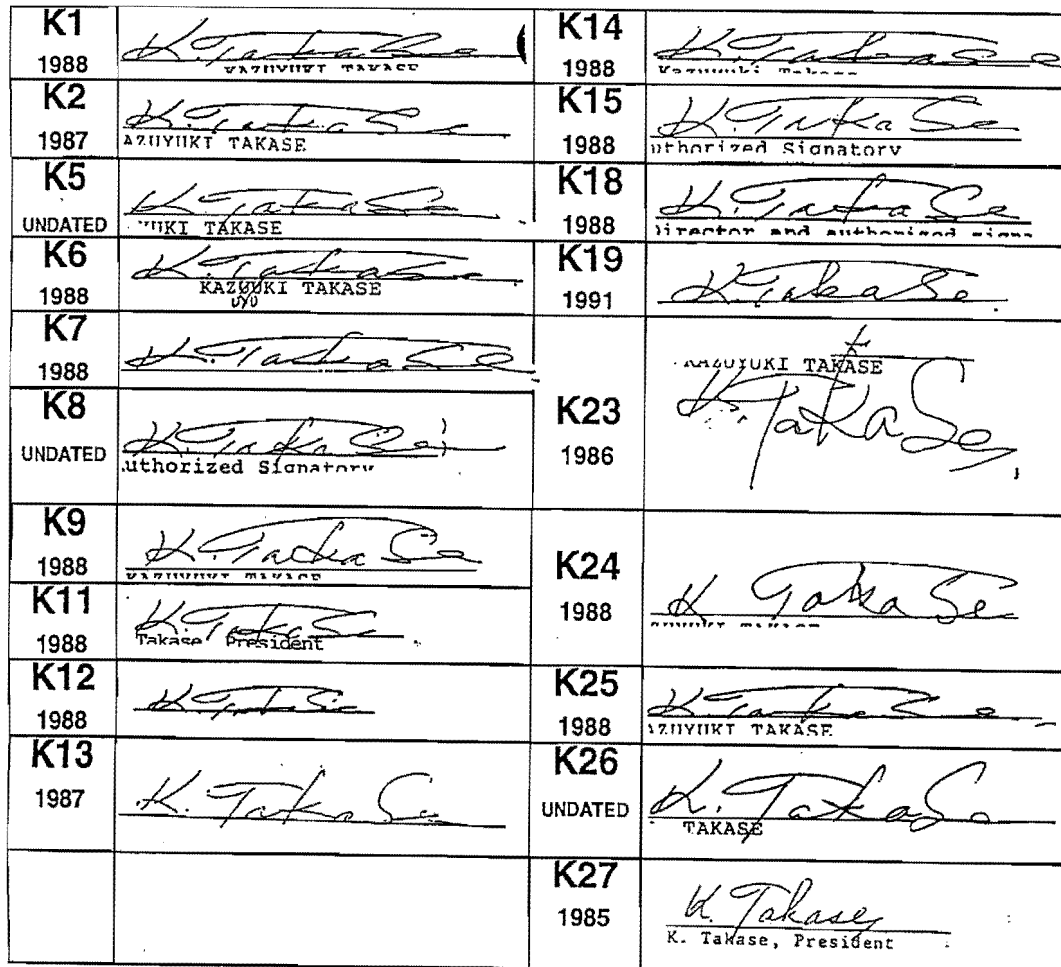 K1
1988
K. TakaSe
KAZUYUKI TAKASE
K2
1987
K. TakaSe
AZUYUKI TAKASE
K5
UNDATED
K. TakaSe
YUKI TAKASE
K6
1988
K. TakaSe
KAZUUKI TAKASE
UYU
K7
1988
K. TakaSe
K8
UNDATED
K. TakaSe
uthorized Signatory
K9
1988
K. TakaSe
KAZUYUKI TAKASE
K11
1988
K. TakaSe
Takase, President
K12
1988
K. TakaSe
K13
1987
K. TakaSe
K14
1988
K. TakaSe
Kazuyuki Takase
K15
1988
K. TakaSe
uthorized Signatory
K18
1988
K. TakaSe
Director and authorized signa
K19
1991
K. TakaSe
K23
1986
KAZUYUKI TAKASE
K. TakaSe
K24
1988
K TakaSe
ZUYUKI TAKASE
K25
1988
K. TakaSe
AZUYUKI TAKASE
K26
UNDATED
K. TakaSe
TAKASE
K27
1985
K. Takase
K. Takase, President